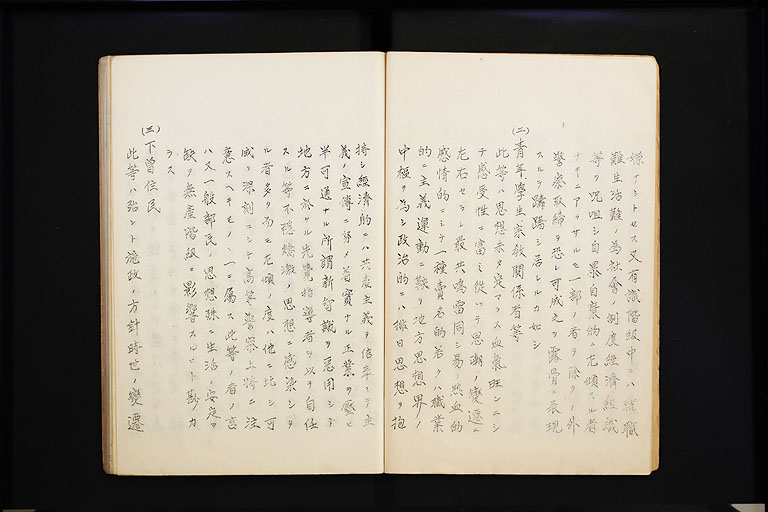 嫌アントセス又有識階級中ニハ就職
難生活難ノ為社會ノ制度經濟組織
等ヲ呪咀シ自暴自棄的ニ左傾スル者
ナキニアラサルモ一部ノ者ヲ除クノ外
警察取締ヲ恐レ可成之ヲ露骨ニ表現
スルヲ躊躇シ居レルカ如シ
(二)青年學生宗敎關係者等
此等ハ思想未タ定マラス血氣旺ンニシ
テ感受性ニ富ミ從ツテ思潮ノ變遷ニ
左右セラレ最共鳴雷同シ易ク熱血的
感情的ニシテ一種賣名的若クハ職業
的ニ主義運動ニ鞅リ地方思想界ノ
中樞ヲ為シ政治的ニハ排日思想ヲ抱
持シ經濟的ニハ共產主義ヲ信奉シテ主
義ノ宣傳ニ努メ着實ナル正業ヲ厭ヒ
半可通ナル所謂新智識ヲ惡用シテ
地方ニ於ケル先覺指導者ヲ以テ自任
スル等不穩矯激ノ思想ニ感染シタ
ル者多ク而モ左傾ノ度ハ他ニ比シ可
成リ深刻ニシテ高等警察上特ニ注
意スヘキモノハ一ニ屬ス此等ノ者ノ言
ハ又一般部民ノ思想殊ニ生活ノ安定ヲ
缺ク無產階級ニ影響スルコト尠カ
ラス
(三)下層住民
此等ハ殆ント施政ノ方針時世ノ變遷